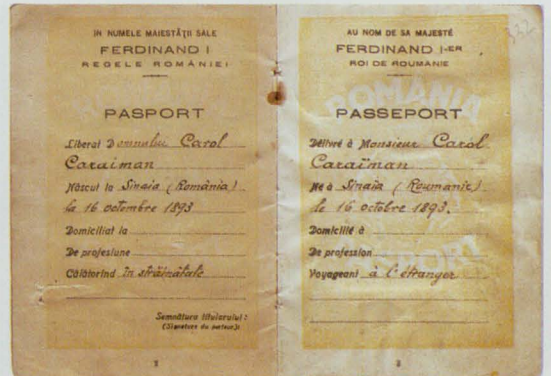 IN NUMELE MAIESTĂȚII SALE
FERDINAND I
REGELE ROMÂNIEI
PASPORT
Liberat Domnului Carol
Caraiman
Născut la Sinaia (România)
la 16 octombre 1893
Domiciliat la
De profesiune
Călătorind în străinătate
Semnătura titularului:
(Signature du porteur):
2
332
AU NOM DE SA MAJESTÉ
FERDINAND I-ER
ROI DE ROUMANIE
ROMANIA
PASSEPORT
Délivré à Monsieur Carol
Caraïman
Né à Sinaia (Roumanie)
le 16 octobre 1893.
Domicilié à
De profession
Voyageant à l'étranger
3